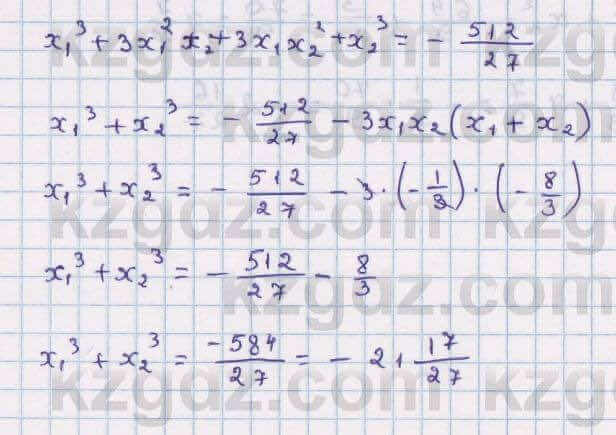 x₁³ + 3x₁² x₂ + 3x₁x₂² + x₂³ = - 512/27
x₁³ + x₂³ = - 512/27 - 3x₁x₂(x₁ + x₂)
x₁³ + x₂³ = - 512/27 - 3·(-1/3)·(-8/3)
x₁³ + x₂³ = - 512/27 - 8/3
x₁³ + x₂³ = -584/27 = - 21 17/27
kzgdz.com